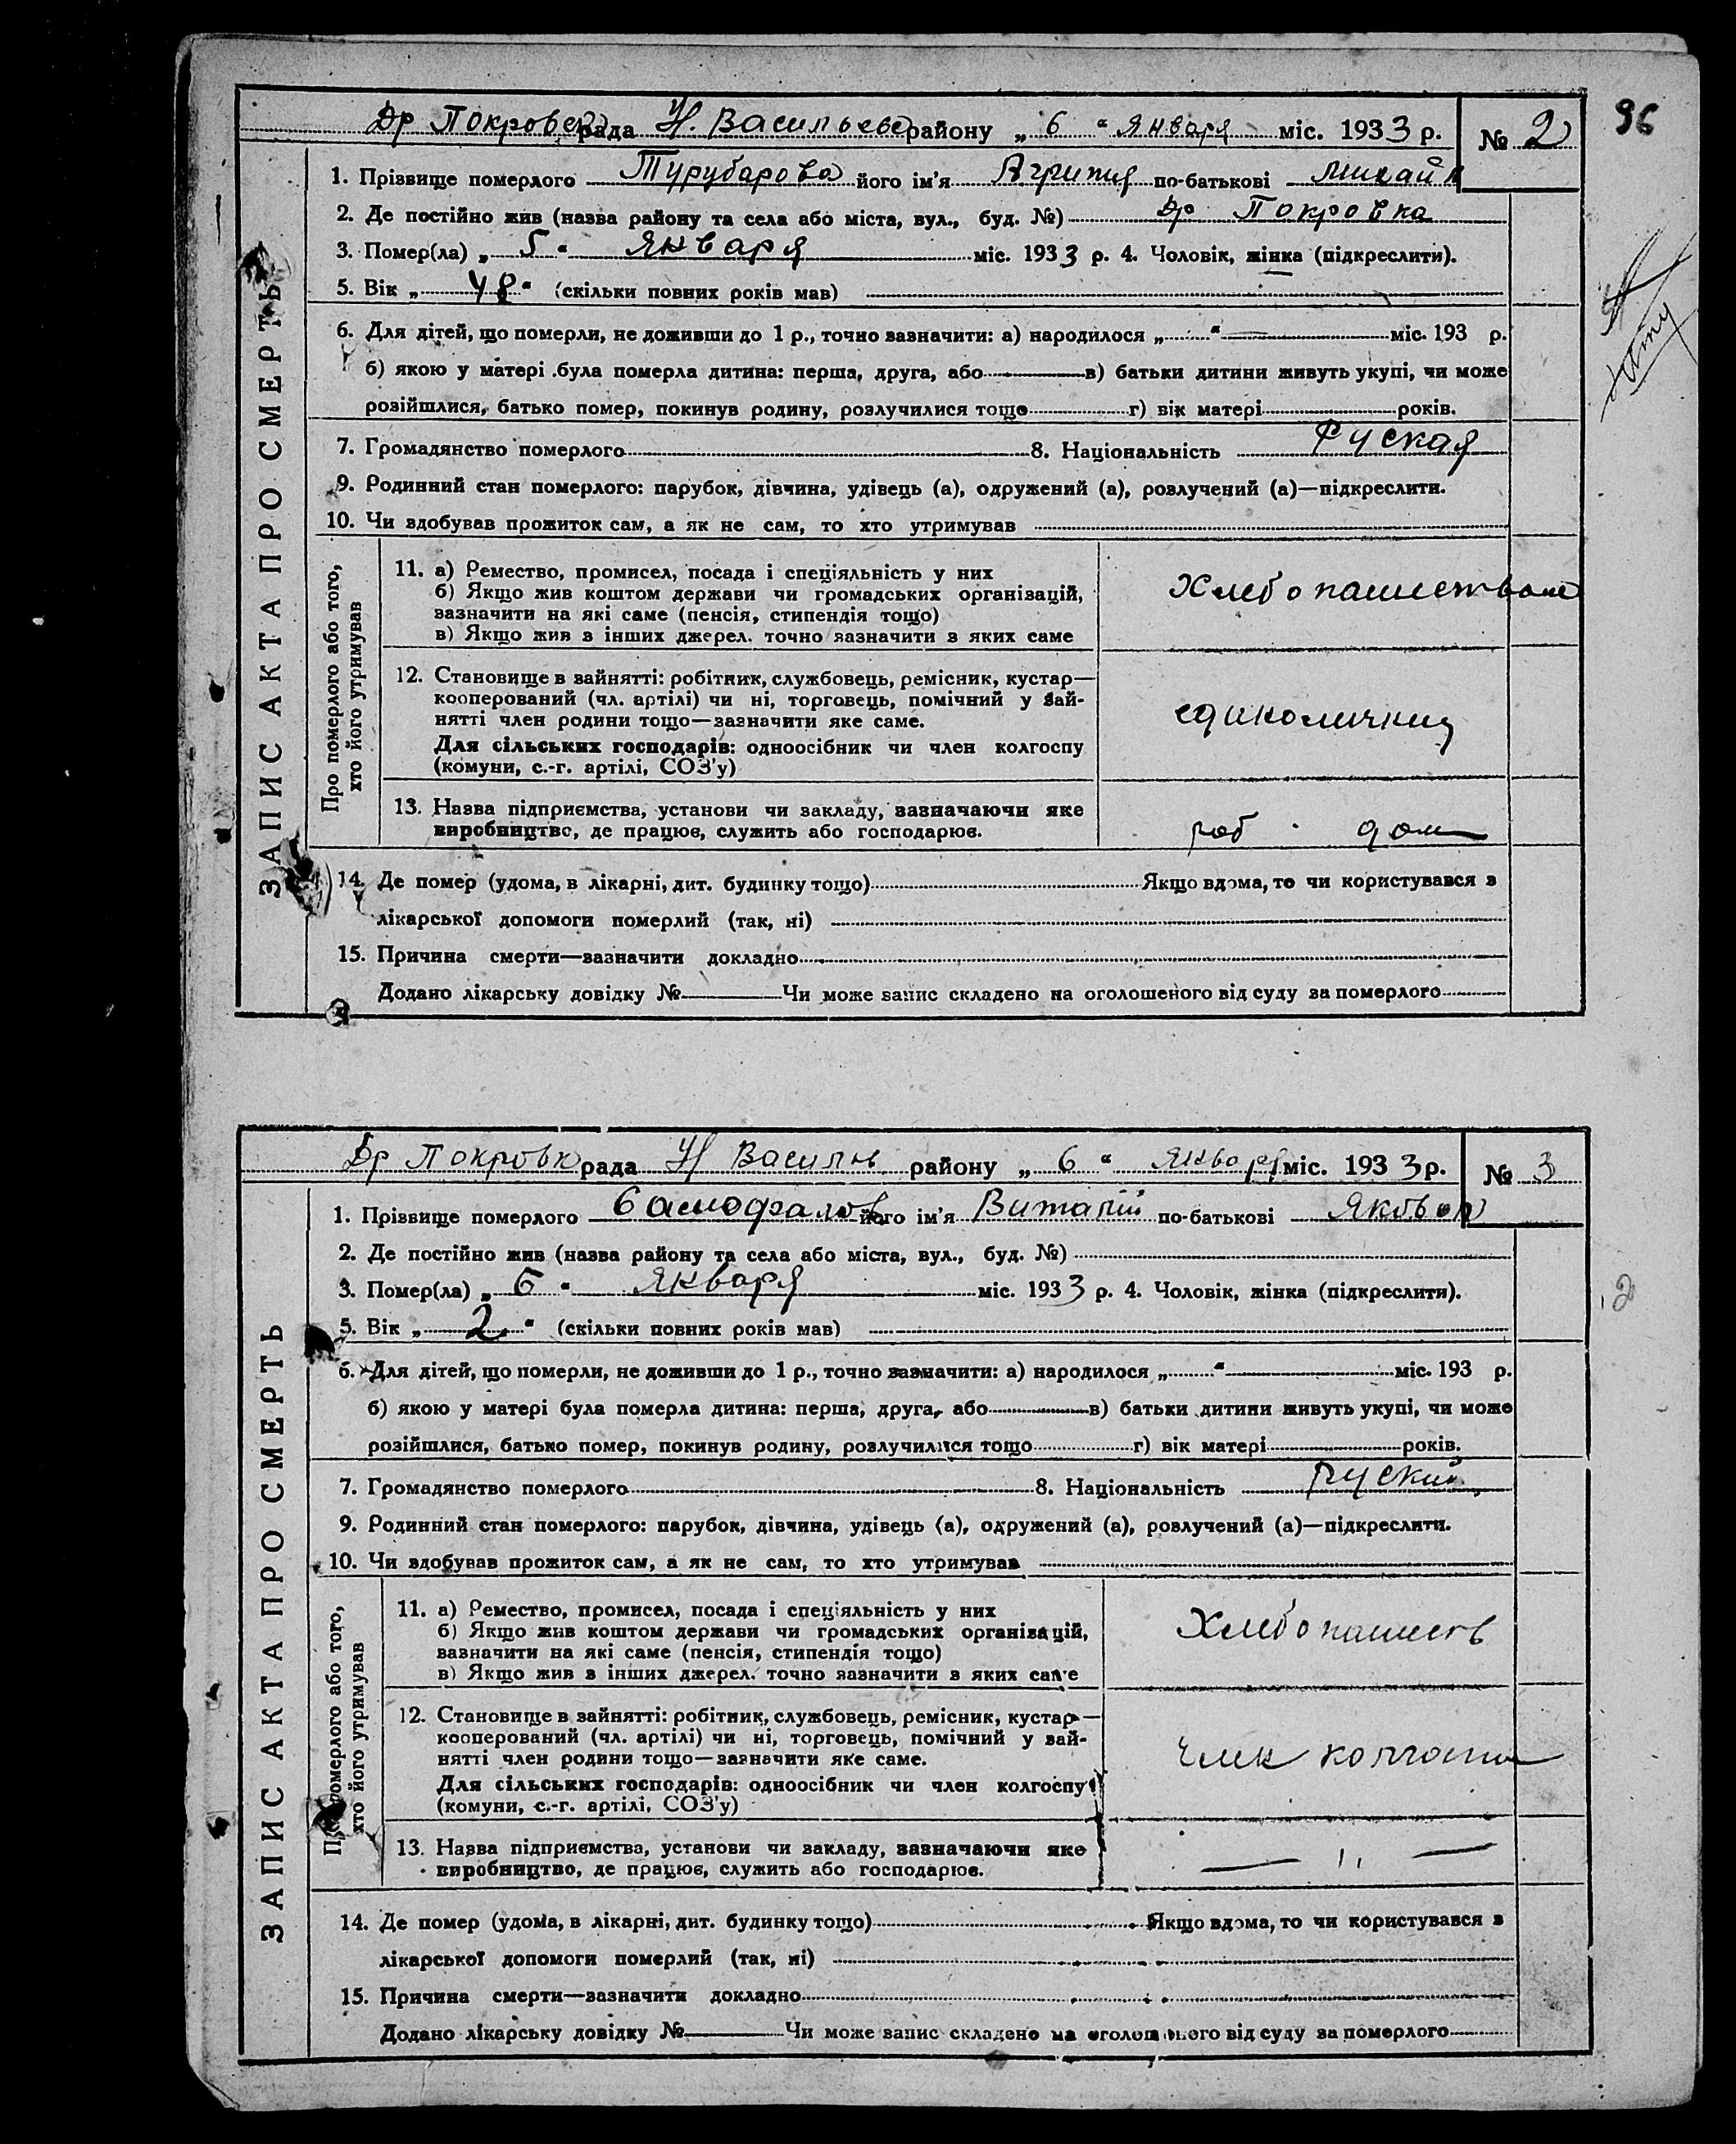 96
Др Покровск рада Н. Васильев району „ 6 “ Января міс. 1933 р. № 2
1. Прізвище померлого Турубарова його ім'я Агрипия по-батькові Михайл
2. Де постійно жив (назва району та села або міста, вул., буд. №) Др Покровка
3. Помер(ла) „ 5 “ Января міс. 1933 р. 4. Чоловік, жінка (підкреслити).
5. Вік „ 48 “ (скільки повних років мав)
6. Для дітей, що померли, не доживши до 1 р., точно зазначити: а) народилося „ “ міс. 193 р.
б) якою у матері була померла дитина: перша, друга, або в) батьки дитини живуть укупі, чи може
розійшлися, батько помер, покинув родину, розлучилися тощо г) вік матері років.
7. Громадянство померлого 8. Національність Руская
9. Родинний стан померлого: парубок, дівчина, удівець (а), одружений (а), розлучений (а)—підкреслити.
10. Чи здобував прожиток сам, а як не сам, то хто утримував
ЗАПИС АКТА ПРО СМЕРТЬ
Про померлого або того,
хто його утримував
11. а) Ремество, промисел, посада і спеціяльність у них
б) Якщо жив коштом держави чи громадських організацій,
зазначити на які саме (пенсія, стипендія тощо)
в) Якщо жив з інших джерел. точно зазначити з яких саме
Хлебопашество
12. Становище в зайнятті: робітник, службовець, ремісник, кустар—
кооперований (чл. артілі) чи ні, торговець, помічний у зай-
нятті член родини тощо—зазначити яке саме.
Для сільських господарів: одноосібник чи член колгоспу
(комуни, с.-г. артілі, СОЗ'у)
единоличниц
13. Назва підприємства, установи чи закладу, зазначаючи яке
виробництво, де працює, служить або господарює.
раб дом
14. Де помер (удома, в лікарні, дит. будинку тощо) Якщо вдома, то чи користувався з
лікарської допомоги померлий (так, ні)
15. Причина смерти—зазначити докладно
Додано лікарську довідку № Чи може запис складено на оголошеного від суду за померлого
Др Покровк рада Н Васильв району „ 6 “ Января міс. 1933 р. № 3
1. Прізвище померлого його ім'я Виталій по-батькові Яковл
2. Де постійно жив (назва району та села або міста, вул., буд. №)
3. Помер(ла) „ 6 “ Января міс. 1933 р. 4. Чоловік, жінка (підкреслити).
2
5. Вік „ 2 “ (скільки повних років мав)
6. Для дітей, що померли, не доживши до 1 р., точно зазначити: а) народилося „ “ міс. 193 р.
б) якою у матері була померла дитина: перша, друга, або в) батьки дитини живуть укупі, чи може
розійшлися, батько помер, покинув родину, розлучилися тощо г) вік матері років.
7. Громадянство померлого 8. Національність Руский
9. Родинний стан померлого: парубок, дівчина, удівець (а), одружений (а), розлучений (а)—підкреслити.
10. Чи здобував прожиток сам, а як не сам, то хто утримував
ЗАПИС АКТА ПРО СМЕРТЬ
Про померлого або того,
хто його утримував
11. а) Ремество, промисел, посада і спеціяльність у них
б) Якщо жив коштом держави чи громадських організацій,
зазначити на які саме (пенсія, стипендія тощо)
в) Якщо жив з інших джерел. точно зазначити з яких саме
Хлебопашеств
12. Становище в зайнятті: робітник, службовець, ремісник, кустар—
кооперований (чл. артілі) чи ні, торговець, помічний у зай-
нятті член родини тощо—зазначити яке саме.
Для сільських господарів: одноосібник чи член колгоспу
(комуни, с.-г. артілі, СОЗ'у)
член
13. Назва підприємства, установи чи закладу, зазначаючи яке
виробництво, де працює, служить або господарює.
— " —
14. Де помер (удома, в лікарні, дит. будинку тощо) Якщо вдома, то чи користувався з
лікарської допомоги померлий (так, ні)
15. Причина смерти—зазначити докладно
Додано лікарську довідку № Чи може запис складено на оголошеного від суду за померлого